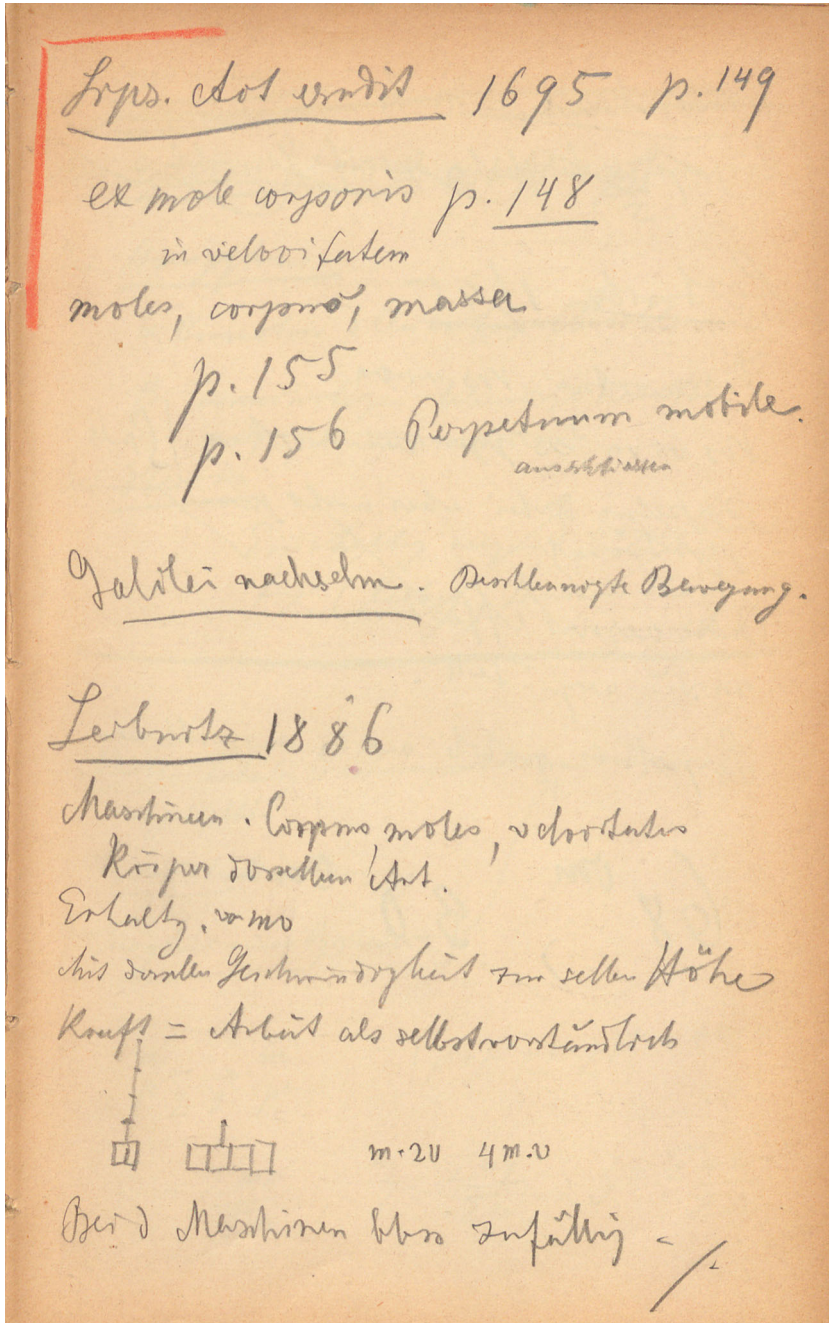 Lips. Act erudit 1695 p. 149
ex mole corporis p. 148
in velocitatem
moles, corpus, massa
p. 155
p. 156 Perpetuum mobile.
ausschliessen
Galilei nachsehn. Beschleunigte Bewegung.
Leibnitz 1886
Maschinen. Corpus, moles, velocitates
Körper derselben Art.
Erhaltg. von mv
Mit derselben Geschwindigkeit zur selben Höhe
Kraft = Arbeit als selbstverständlich
m·2v 4m·v
Bei d Maschinen blos zufällig